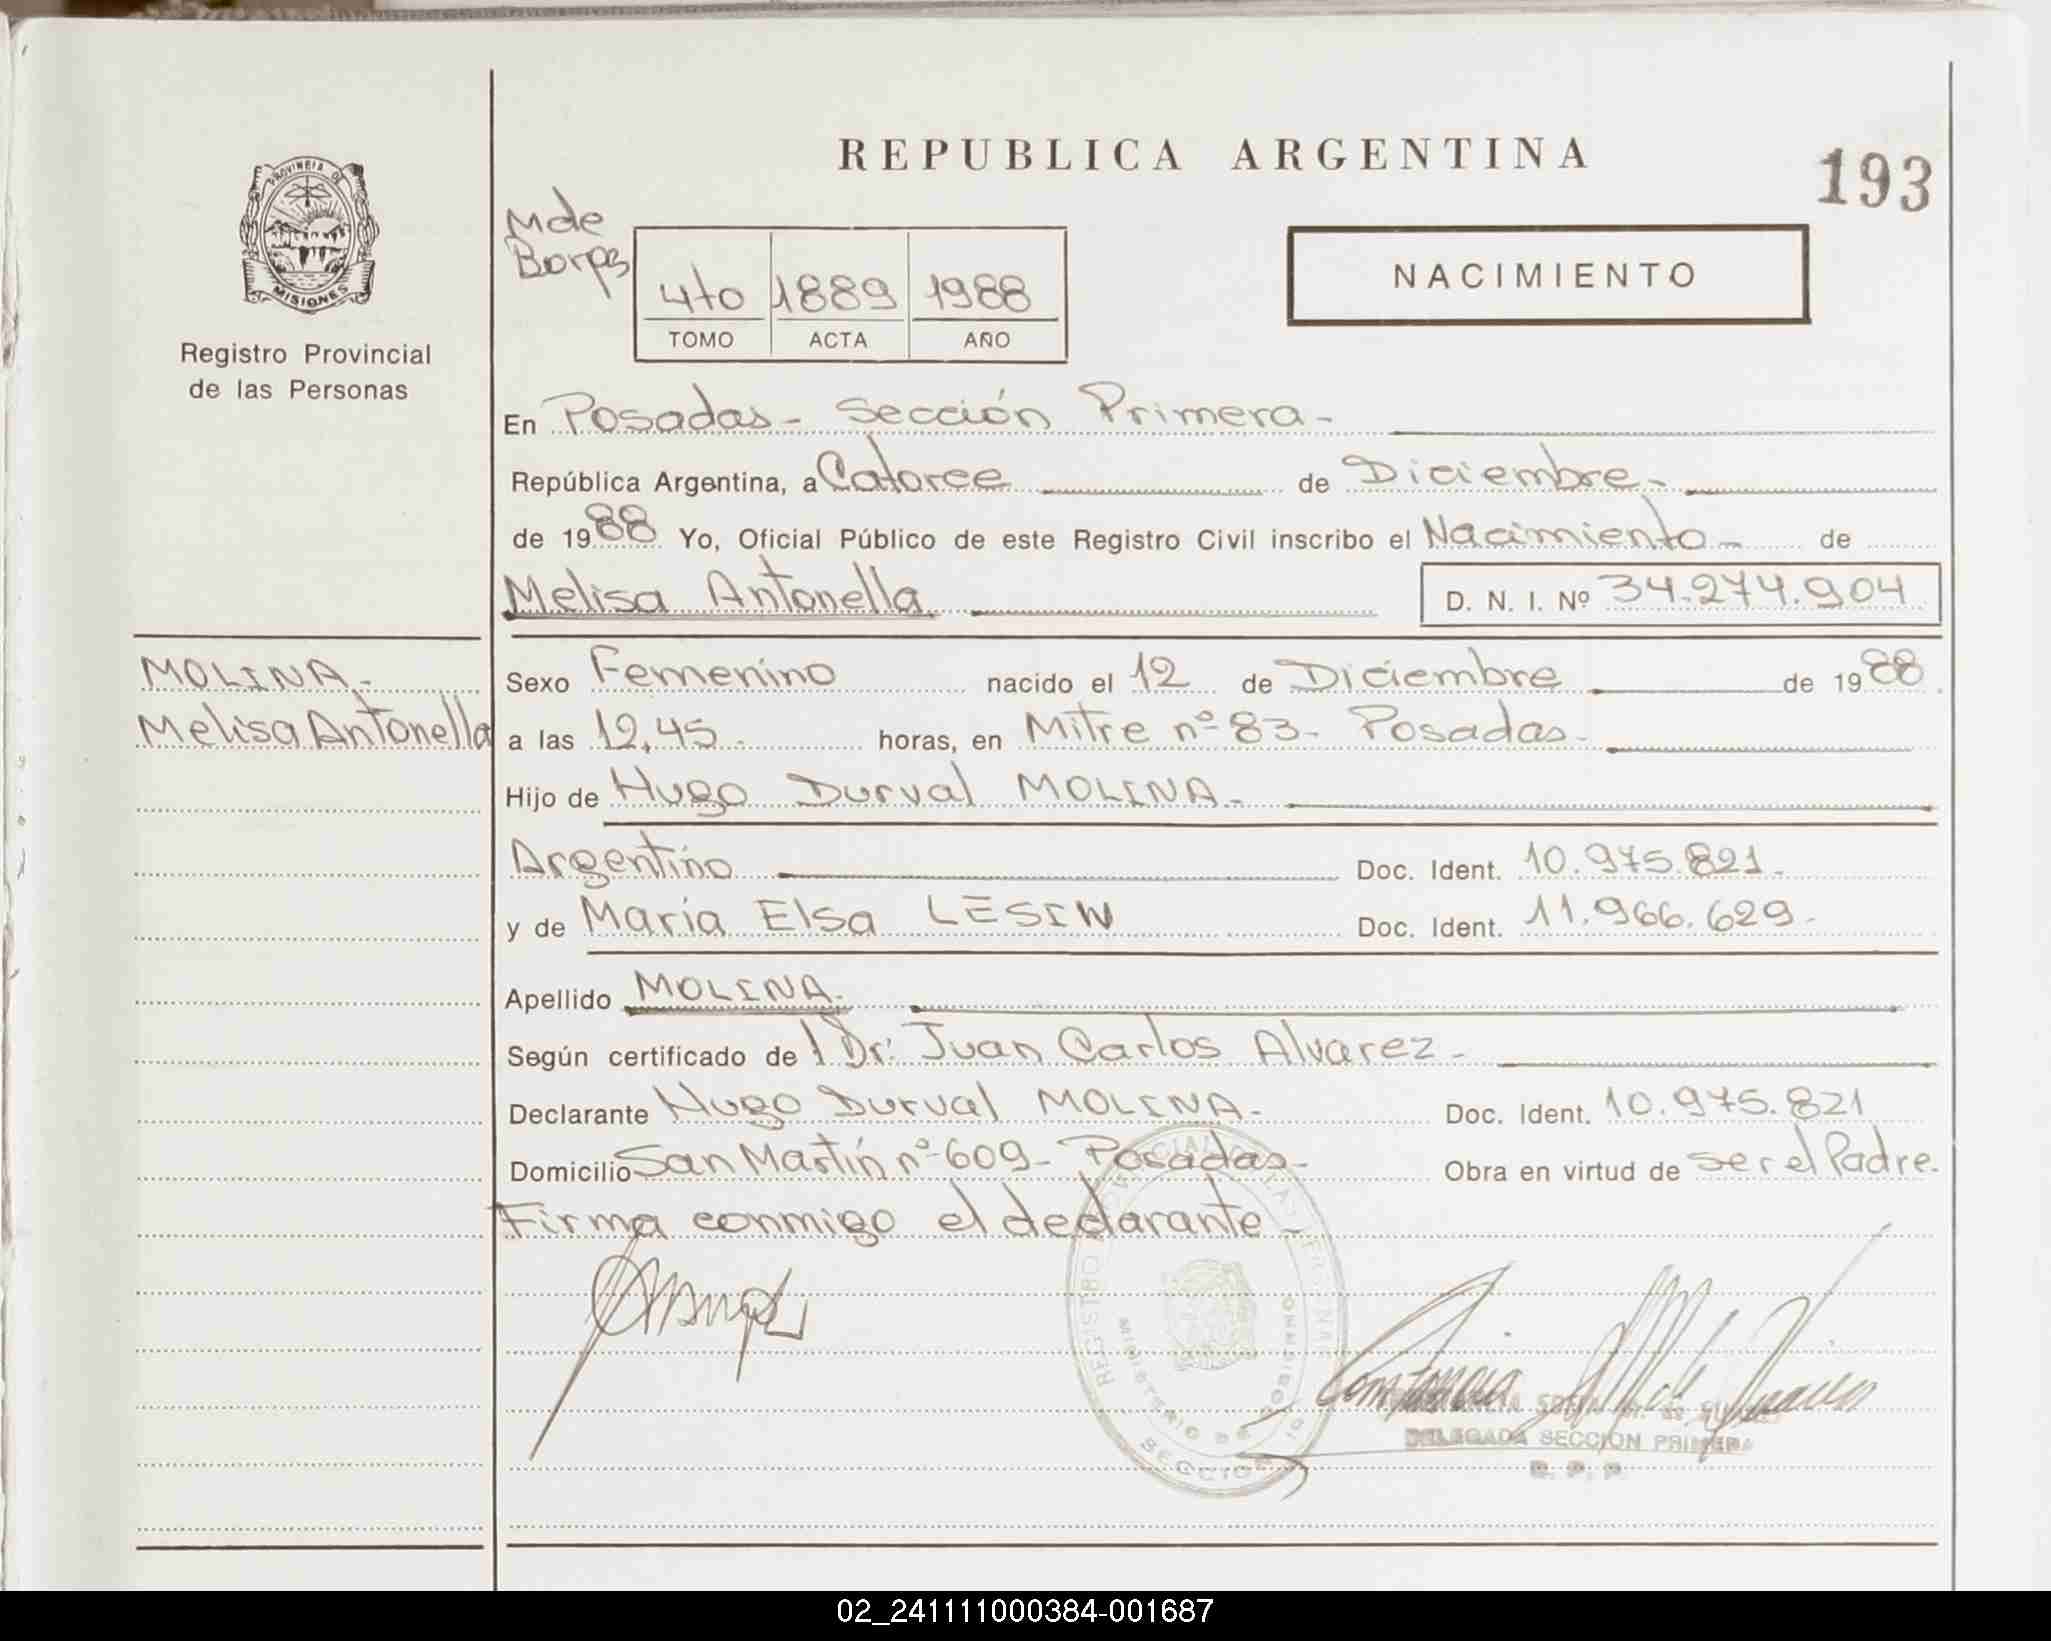 REPUBLICA ARGENTINA
193
PROVINCIA DE
MISIONES
Registro Provincial
de las Personas
M de
Borges
4to 1889 1988
TOMO ACTA AÑO
NACIMIENTO
En Posadas - Sección Primera -
República Argentina, a Catorce de Diciembre -
de 1988 Yo, Oficial Público de este Registro Civil inscribo el Nacimiento - de
Melisa Antonella D. N. I. Nº 34.274.904
MOLINA -
Melisa Antonella
Sexo Femenino nacido el 12 de Diciembre de 1988
a las 12,45 - horas, en Mitre nº 83 - Posadas -
Hijo de Hugo Durval MOLINA -
Argentino Doc. Ident. 10.975.821 -
y de María Elsa LESIW Doc. Ident. 11.966.629 -
Apellido MOLINA -
Según certificado de l Dr. Juan Carlos Alvarez -
Declarante Hugo Durval MOLINA - Doc. Ident. 10.975.821
Domicilio San Martín nº 609 - Posadas - Obra en virtud de ser el Padre -
Firma conmigo el declarante -
REGISTRO PROVINCIAL DE LAS PERSONAS
MINISTERIO DE GOBIERNO
SECCION 1ª
DELEGADA SECCION PRIMERA
R. P. P.
02_241111000384-001687